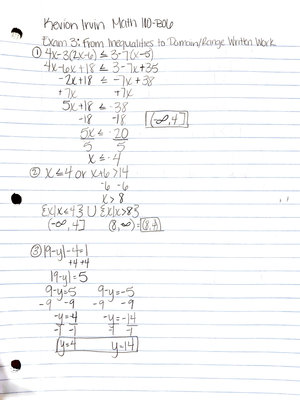 Kevion Irvin Math 110-B06
Exam 3: From Inequalities to Domain/Range Written Work
① 4x-3(2x-6) ≤ 3-7(x-5)
4x-6x+18 ≤ 3-7x+35
-2x+18 ≤ -7x+38
+7x +7x
5x+18 ≤ -38
-18 -18
5x ≤ -20
5 5
x ≤ -4
(-∞, 4]
② x ≤ 4 or x+6 > 14
-6 -6
x > 8
{x|x≤4} ∪ {x|x>8}
(-∞, 4] (8, ∞) =
③ |9-y|-4=1
+4 +4
|9-y| = 5
9-y=5 9-y=-5
-9 -9 -9 -9
-y=-4 -y=-14
-1 -1 -1 -1
y=4 y=14